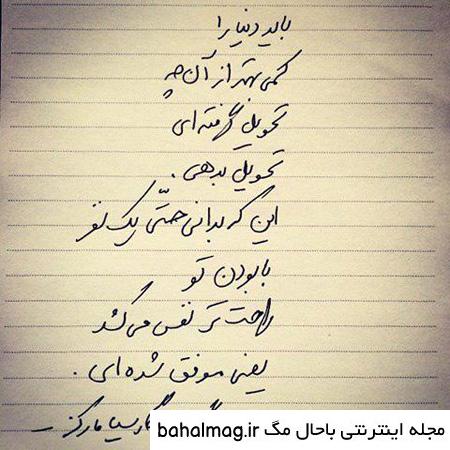 باید دنیا را
کمی بهتر از آن چه
تحویل گرفته ای
تحویل بدهی .
این که بدانی حتّی یک نفر
با بودن تو
راحت تر نفس می کشد
یعنی موفق شده ای .
مارکز
مجله اینترنتی باحال مگ bahalmag.ir